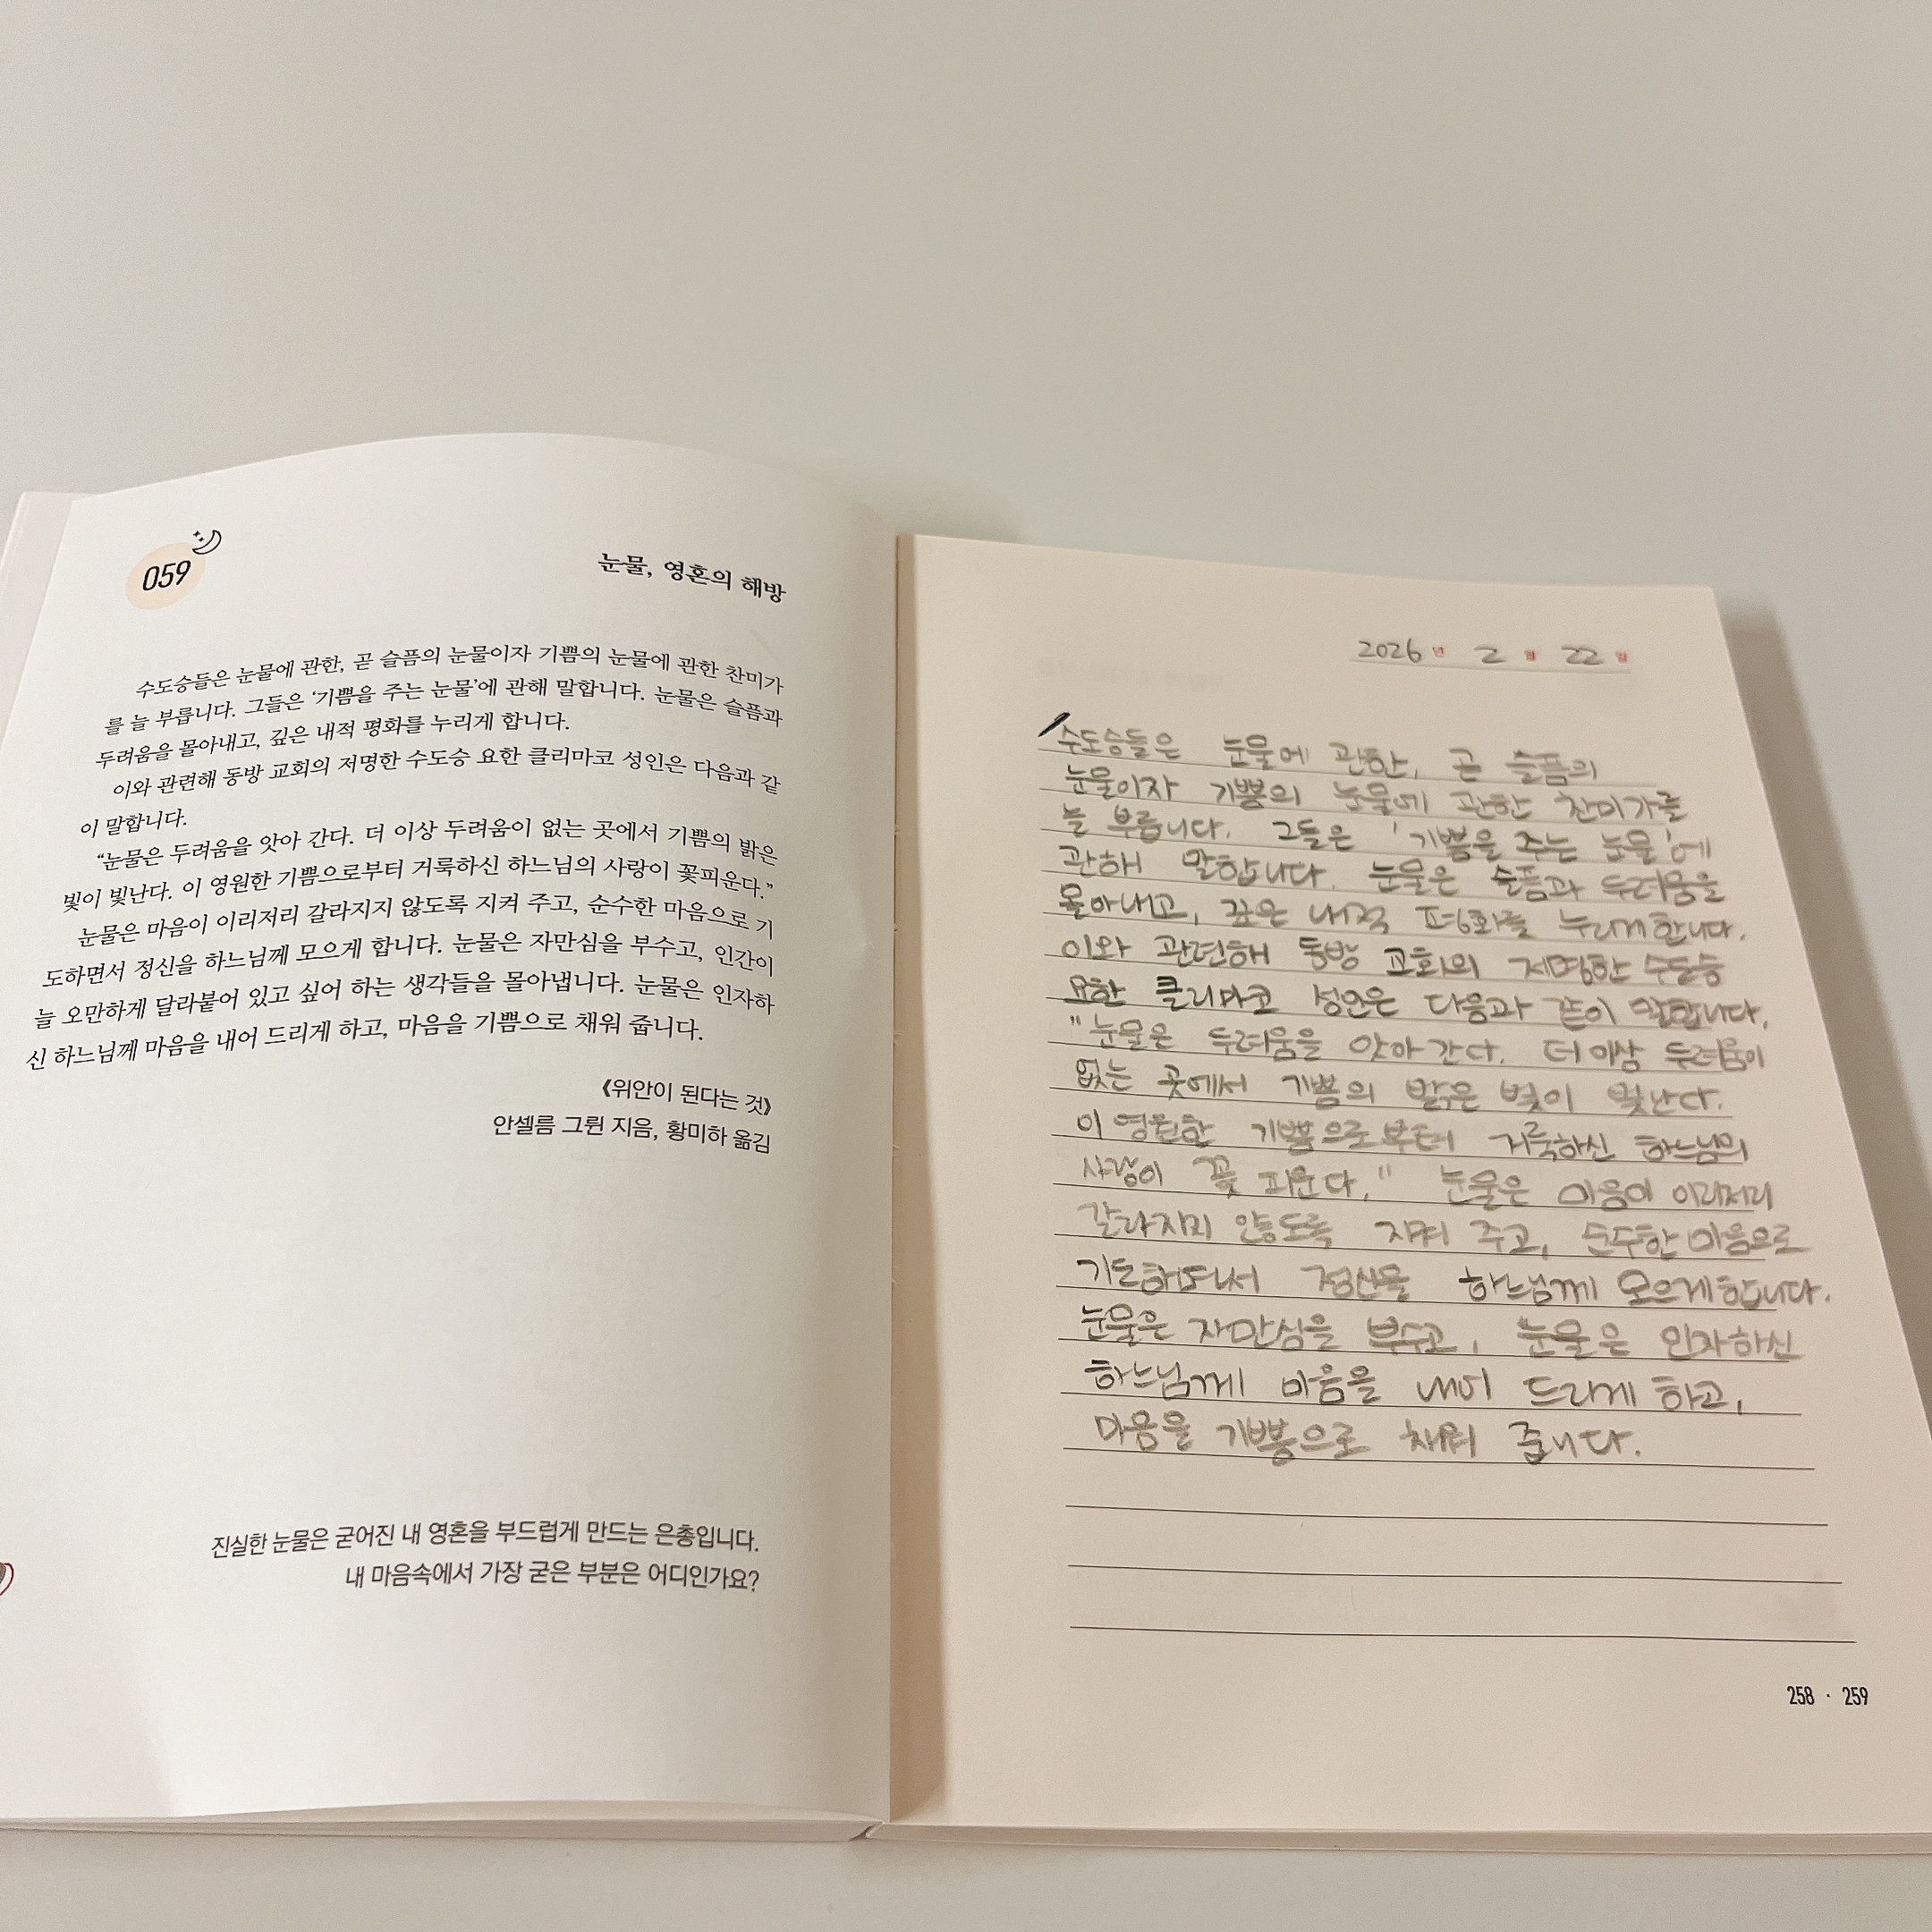 059
눈물, 영혼의 해방
수도승들은 눈물에 관한, 곧 슬픔의 눈물이자 기쁨의 눈물에 관한 찬미가
를 늘 부릅니다. 그들은 ‘기쁨을 주는 눈물’에 관해 말합니다. 눈물은 슬픔과
두려움을 몰아내고, 깊은 내적 평화를 누리게 합니다.
이와 관련해 동방 교회의 저명한 수도승 요한 클리마코 성인은 다음과 같
이 말합니다.
“눈물은 두려움을 앗아 간다. 더 이상 두려움이 없는 곳에서 기쁨의 밝은
빛이 빛난다. 이 영원한 기쁨으로부터 거룩하신 하느님의 사랑이 꽃피운다.”
눈물은 마음이 이리저리 갈라지지 않도록 지켜 주고, 순수한 마음으로 기
도하면서 정신을 하느님께 모으게 합니다. 눈물은 자만심을 부수고, 인간이
늘 오만하게 달라붙어 있고 싶어 하는 생각들을 몰아냅니다. 눈물은 인자하
신 하느님께 마음을 내어 드리게 하고, 마음을 기쁨으로 채워 줍니다.
《위안이 된다는 것》
안셀름 그륀 지음, 황미하 옮김
진실한 눈물은 굳어진 내 영혼을 부드럽게 만드는 은총입니다.
내 마음속에서 가장 굳은 부분은 어디인가요?
2026년 2월 22일
수도승들은 눈물에 관한, 곧 슬픔의
눈물이자 기쁨의 눈물에 관한 찬미가를
늘 부릅니다. 그들은 '기쁨을 주는 눈물'에
관해 말합니다. 눈물은 슬픔과 두려움을
몰아내고, 깊은 내적 평화를 누리게 합니다.
이와 관련해 동방 교회의 저명한 수도승
요한 클리마코 성인은 다음과 같이 말합니다.
"눈물은 두려움을 앗아 간다. 더 이상 두려움이
없는 곳에서 기쁨의 밝은 빛이 빛난다.
이 영원한 기쁨으로부터 거룩하신 하느님의
사랑이 꽃 피운다." 눈물은 마음이 이리저리
갈라지지 않도록 지켜 주고, 순수한 마음으로
기도하면서 정신을 하느님께 모으게 합니다.
눈물은 자만심을 부수고, 눈물은 인자하신
하느님께 마음을 내어 드리게 하고,
마음을 기쁨으로 채워 줍니다.
258 · 259